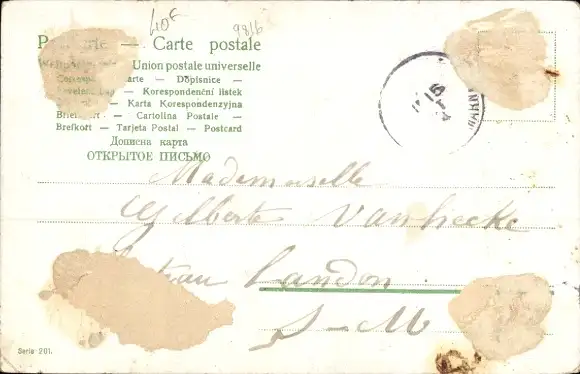 40F
9816
Carte postale
Union postale universelle
Dopisnice
Korespondenční listek
Karta Korespondenzyjna
Cartolina Postale
Brefkort — Tarjeta Postal — Postcard
Дописна карта
ОТКРЫТОЕ ПИСЬМО
Mademoiselle
Gilberte Vanhecke
Landon
S-M
Serie 201.